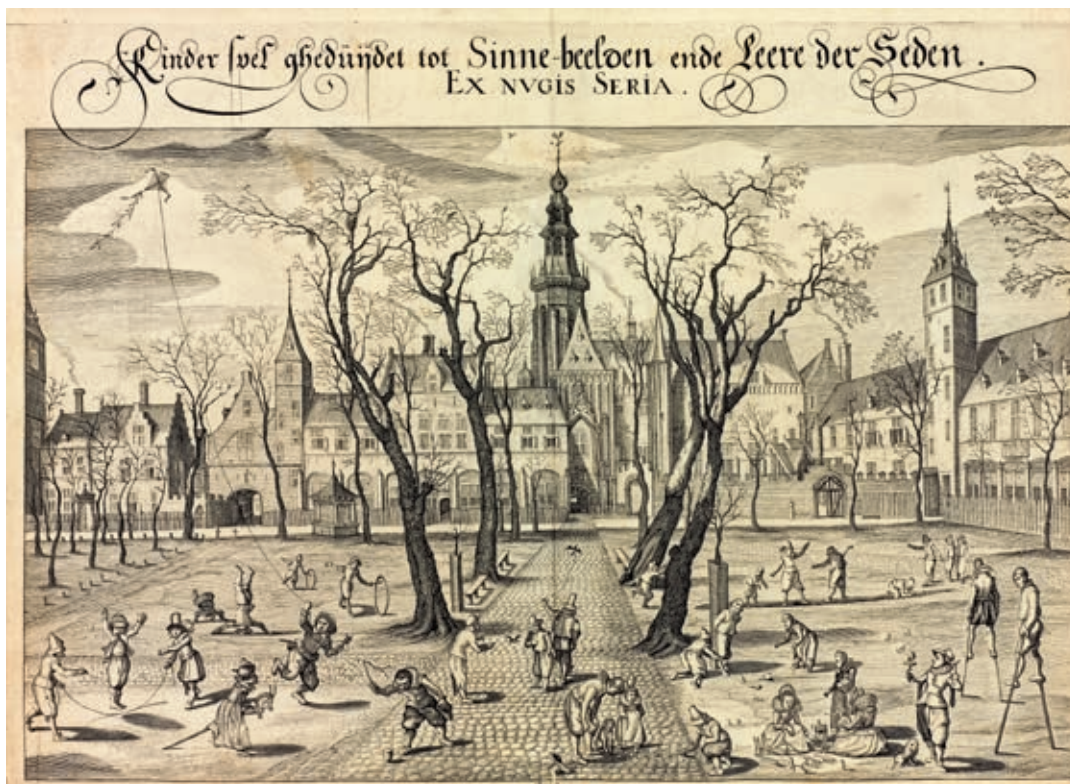 Kinder spel ghedüÿdet tot Sinne-beelden ende Leere der Seden.
EX NVGIS SERIA.